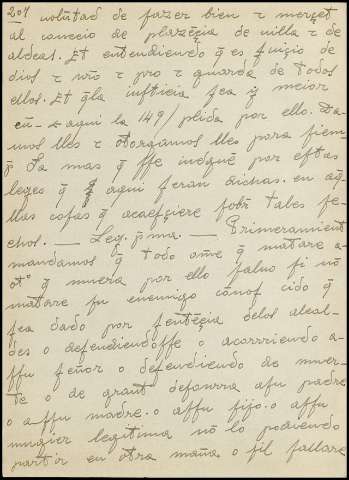 204 volūtad de fazer bien τ merçet
al conceio de plazēçia de uilla τ de
aldeas. Et entendiendo q̄ es ſuiçio de
dios τ nr̄o τ pro τ guarda de todos
ellos. Et q̄la iuſticia ſea q̄ meior
aqui la 149/ plida por ello. Da-
mos lles τ otorgamos lles para ſiem-
p̄ Ja mas q̄ ſſe iudguē por eſtas
leges q̄ aqui ſeran dichas. en aq̄-
llas coſas q̄ acaeſçiere ſobr̄ tales fe-
chos. — Leg. p̄ma. — Primeramient̄
mandamos q̄ todo om̄e q̄ matare a
ot° q̄ muera por ello ſaluo ſi nō
matare ſu enemigo coñoſ cido q̄
ſea dado por ſentēçia delos alcal-
des o defendiendoſſe o acorriendo a-
ſſu ſeñor o defendiendo de muer-
te o de grant deſonrra aſu padre
o aſſu madre. o aſſu fijo. o aſſu
mugier legitima nō lo podiendo
partir en otra man̄a. o ſil fallare